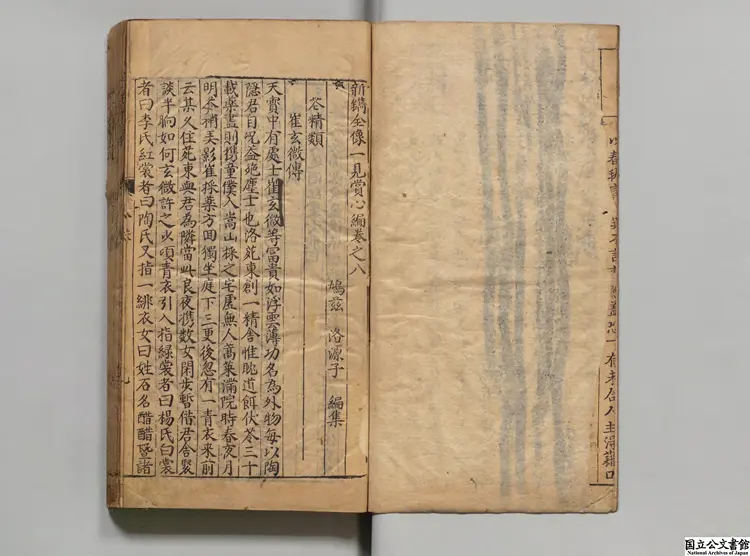 新鐫全像一見賞心編卷之八
鳩兹 洛源子 編集
花精類
崔玄微傳
天寶中有處士崔玄微等富貴如浮雲薄功名為外物每以陶
隱君自況益絶塵士也洛苑東創一精舍惟耽道餌伏苓三十
載藥盡則携童僕入嵩山採之宅虛無人蒿萊滿院時春夜月
明參橫美影崔採藥方回獨坐庭下三更後忽有一青衣来前
云某久住苑東與君為隣當此良夜携数女閑步暫借君舍聚
談半晌如何玄微許之少頃青衣引入指綠裳者曰楊氏白裳
者曰李氏紅裳者曰陶氏又指一緋衣女曰姓石名醋醋暨諸
国立公文書館
National Archives of Japan